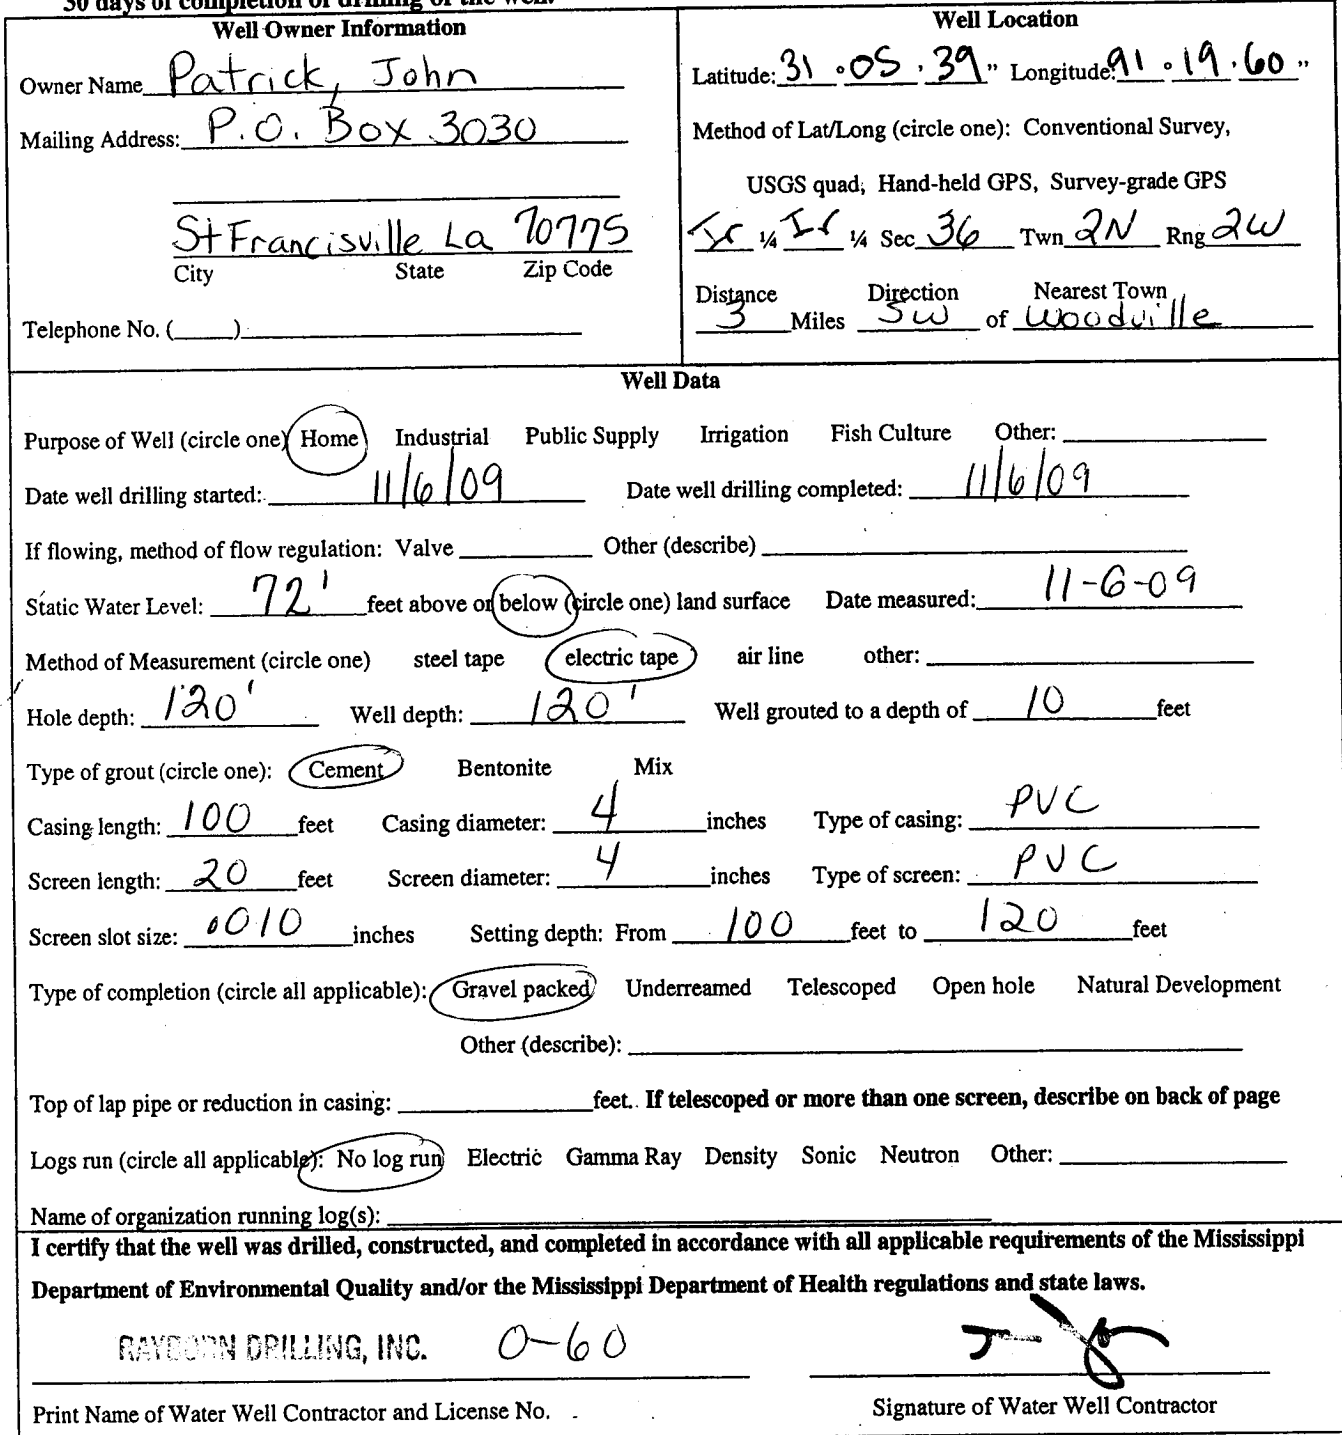 30 days of completion of drilling of the well.
Well Owner Information
Owner Name Patrick, John
Mailing Address: P.O. Box 3030
St Francisville La 70775
City State Zip Code
Telephone No. (___)
Well Location
Latitude: 31 ° 05 . 39 " Longitude: 91 ° 19 . 60 "
Method of Lat/Long (circle one): Conventional Survey,
USGS quad, Hand-held GPS, Survey-grade GPS
Ir ¼ Ir ¼ Sec 36 Twn 2N Rng 2W
Distance Direction Nearest Town
3 Miles SW of Woodville
Well Data
Purpose of Well (circle one) Home Industrial Public Supply Irrigation Fish Culture Other:
Date well drilling started: 11/6/09 Date well drilling completed: 11/6/09
If flowing, method of flow regulation: Valve Other (describe)
Static Water Level: 72' feet above or below (circle one) land surface Date measured: 11-6-09
Method of Measurement (circle one) steel tape electric tape air line other:
Hole depth: 120' Well depth: 120' Well grouted to a depth of 10 feet
Type of grout (circle one): Cement Bentonite Mix
Casing length: 100 feet Casing diameter: 4 inches Type of casing: PVC
Screen length: 20 feet Screen diameter: 4 inches Type of screen: PVC
Screen slot size: .010 inches Setting depth: From 100 feet to 120 feet
Type of completion (circle all applicable): Gravel packed Underreamed Telescoped Open hole Natural Development
Other (describe):
Top of lap pipe or reduction in casing: feet. If telescoped or more than one screen, describe on back of page
Logs run (circle all applicable): No log run Electric Gamma Ray Density Sonic Neutron Other:
Name of organization running log(s):
I certify that the well was drilled, constructed, and completed in accordance with all applicable requirements of the Mississippi
Department of Environmental Quality and/or the Mississippi Department of Health regulations and state laws.
RAYBORN DRILLING, INC. 0-60
Print Name of Water Well Contractor and License No.
Signature of Water Well Contractor